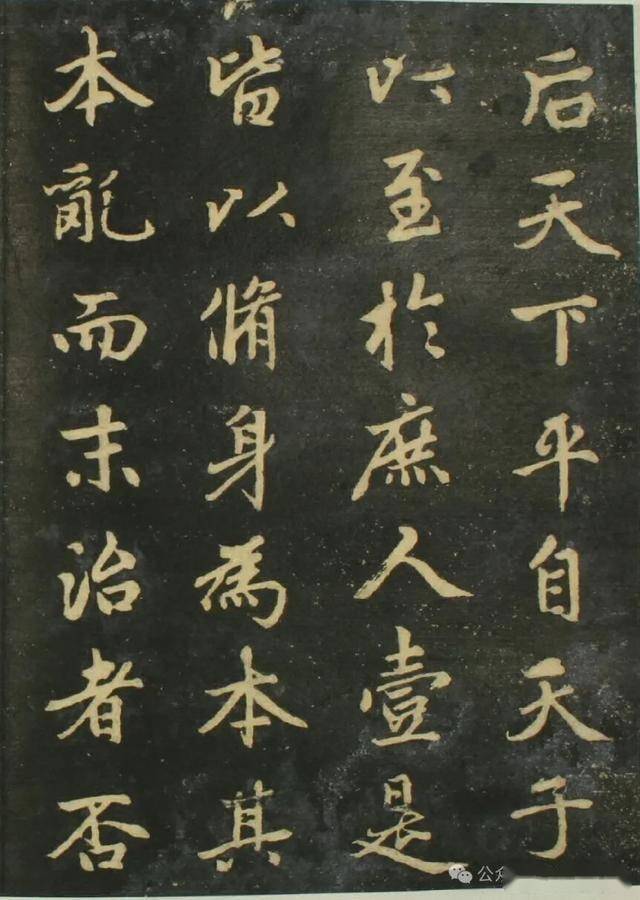 后天下平自天子
以至於庶人壹是
皆以脩身為本其
本亂而末治者否
公众